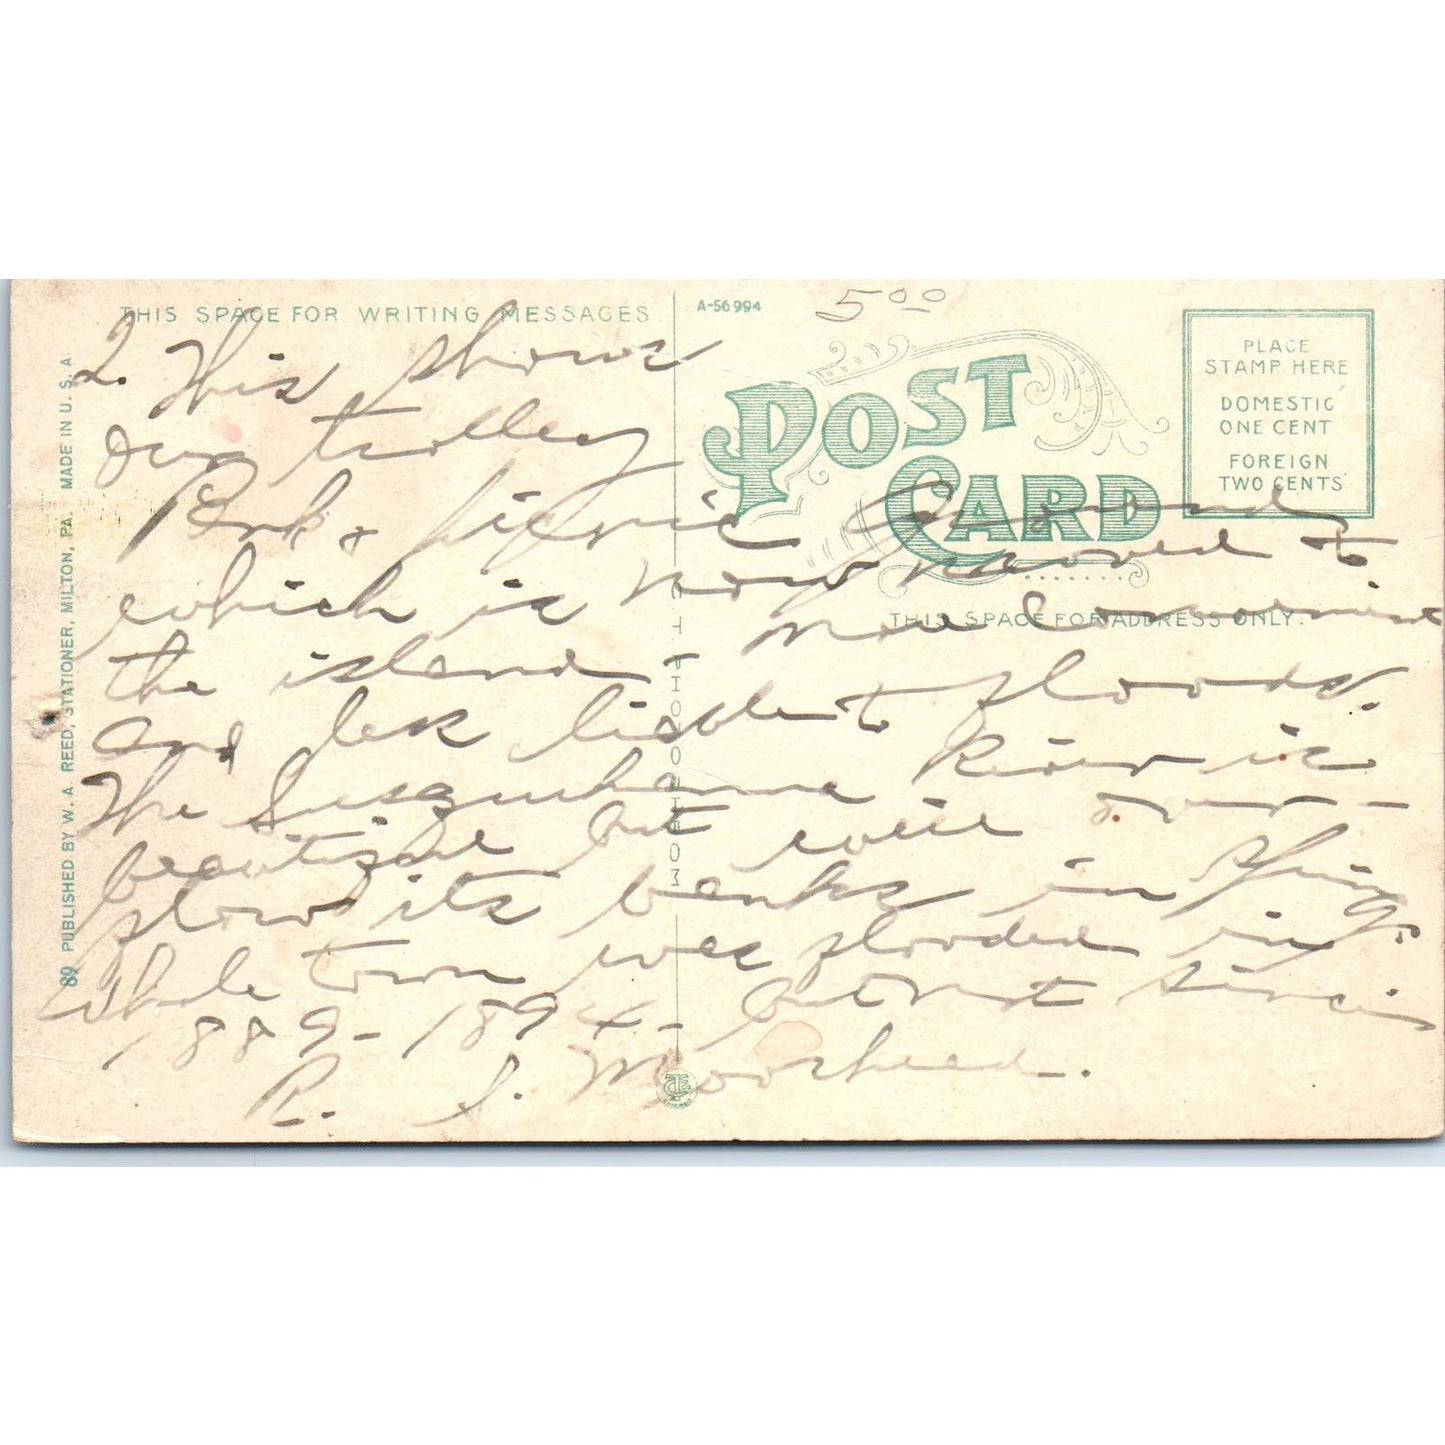 THIS SPACE FOR WRITING MESSAGES
A-56994
5.00
POST CARD
PLACE
STAMP HERE
DOMESTIC
ONE CENT
FOREIGN
TWO CENTS
THIS SPACE FOR ADDRESS ONLY.
89 PUBLISHED BY W. A. REED, STATIONER, MILTON, PA. MADE IN U. S. A
C T PHOTOCHROM
2. This shows
our trolley
Park & picnic Grounds
which is now moved to
the island - more convenient
and less liable to floods.
The Susquehanna River is
beautiful but will over-
flows its banks in Spring.
Whole town was flooded in
1889 - 1894 - but not since
R. S. Moorhead.